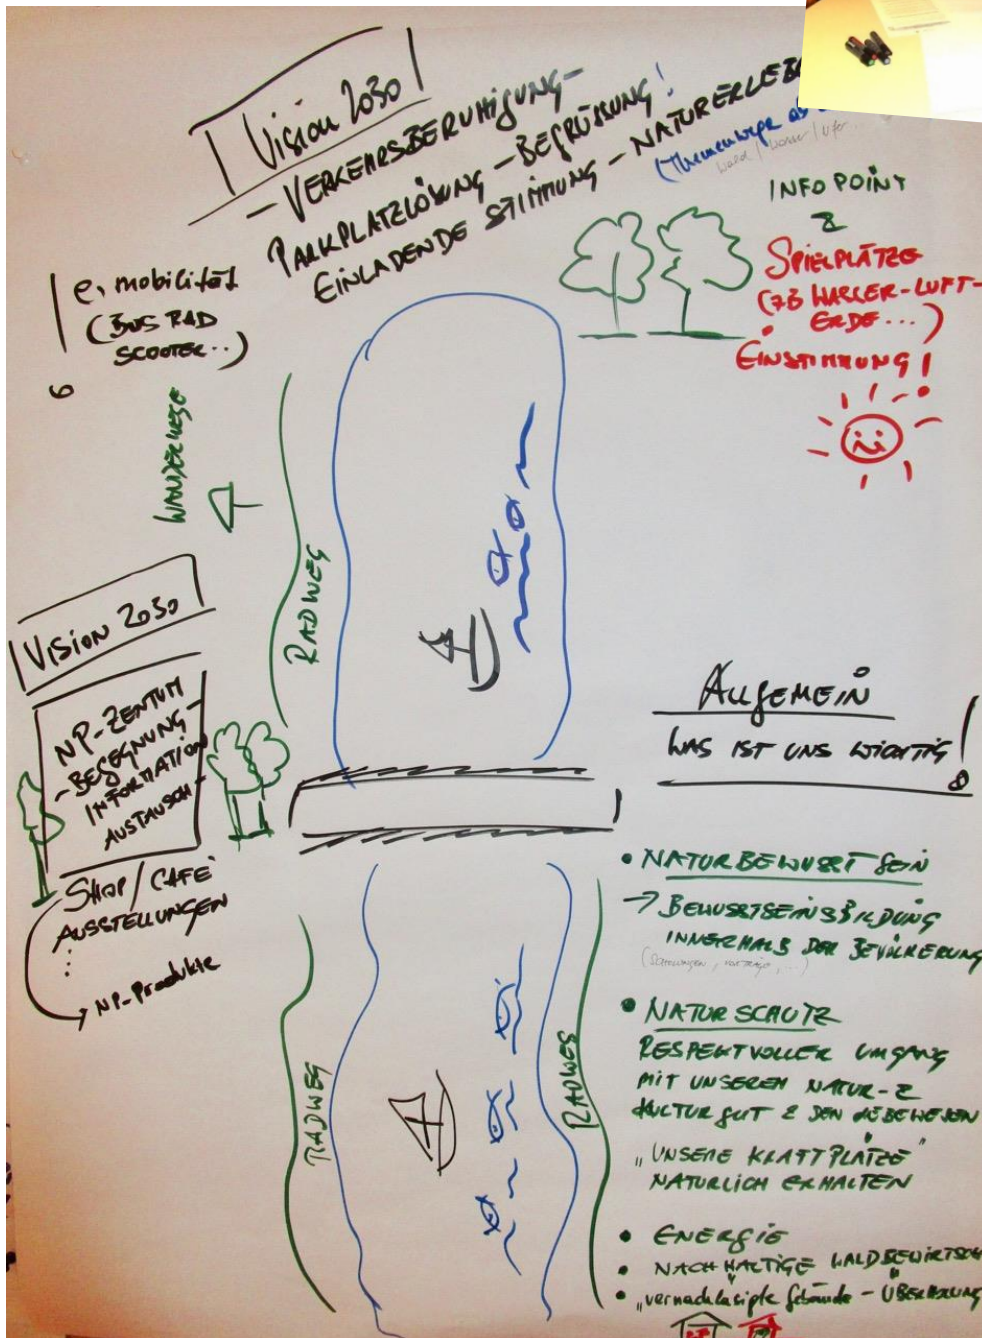 Vision 2030
– VERKEHRSBERUHIGUNG –
PARKPLATZLÖSUNG – BEGRÜSSUNG!
EINLADENDE STIMMUNG – NATURERLEB
(Themenwege ab
Wald / Wasser / Ufer ...
INFO POINT
&
SPIELPLÄTZE
(ZB WASSER-LUFT-
ERDE ...)
EINSTIMMUNG!
e. mobilität
(BUS RAD
SCOOTER..)
WANDERWEGE
RADWEG
Vision 2030
NP-ZENTUM
– BEGEGNUNG –
INFORMATION
AUSTAUSCH –
SHOP / CAFÉ
AUSSTELLUNGEN
...
→ NP-Produkte
ALLGEMEIN
WAS IST UNS WICHTIG!
• NATURBEWUSST SEIN
→ BEWUSSTSEINSBILDUNG
INNERHALB DER BEVÖLKERUNG
(Schulungen, Vorträge, ...)
• NATURSCHUTZ
RESPEKTVOLLER UMGANG
MIT UNSEREM NATUR- &
KULTURGUT & DEN LEBEWESEN
„UNSERE KRAFTPLÄTZE"
NATÜRLICH ERHALTEN
• ENERGIE
• NACHHALTIGE WALDBEWIRTSCH
• „vernachlässigte Gebäude – ÜBERNUNG
RADWEG
RADWEG